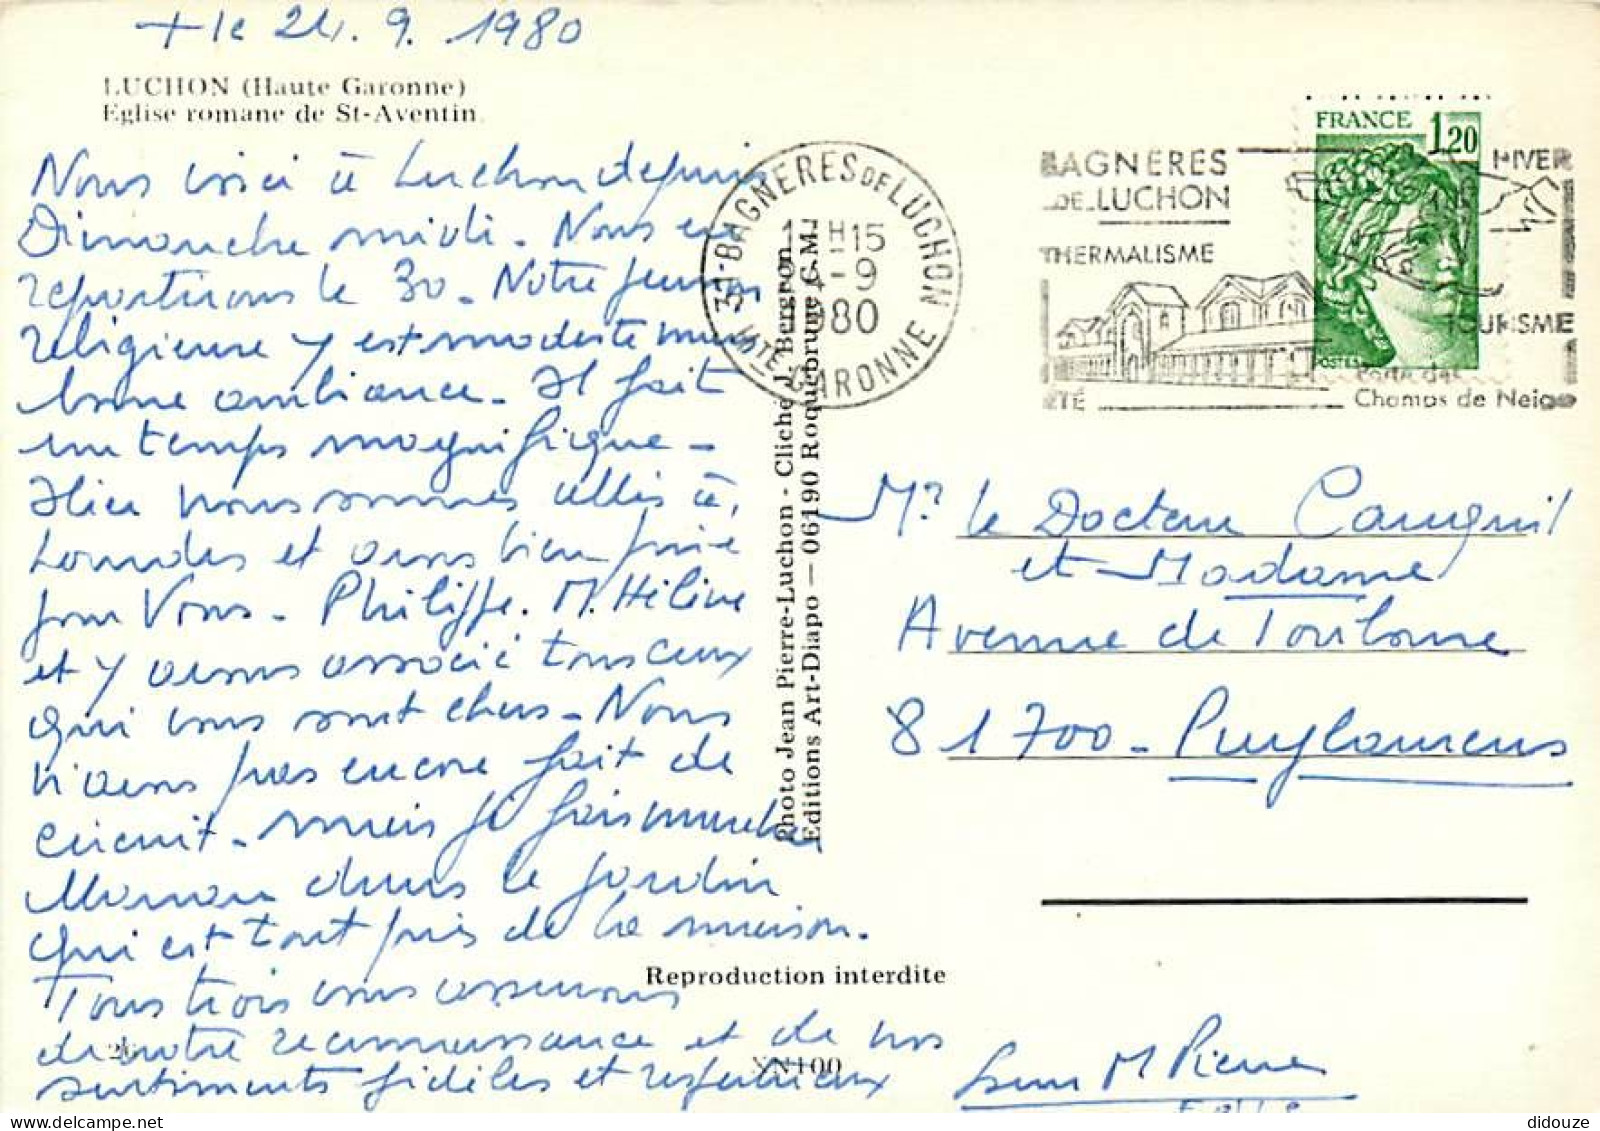 + le 24. 9. 1980
LUCHON (Haute Garonne)
Eglise romane de St-Aventin
Nous voici à Luchon depuis
Dimanche midi. Nous en
repartirons le 30. Notre pension
religieuse y est modeste mais
bonne ambiance. Il fait
un temps magnifique.
Hier nous sommes allés à
Lourdes et avons bien prié
pour Vous. Philippe. M. Hélène
et y avons associé tous ceux
qui vous sont chers. Nous
n'avons pas encore fait de
circuit. mais je fais marcher
Maman dans le jardin
qui est tout près de la maison.
Tous trois vous assurons
de notre reconnaissance et de nos
sentiments fidèles et respectueux
Photo Jean Pierre-Luchon - Cliché J. Bergeron
Editions Art-Diapo — 06190 Roquebrune C.M.
31-BAGNERES DE LUCHON
H15
-9
1980
HTE GARONNE
BAGNERES
DE-LUCHON
THERMALISME
ÉTÉ
HIVER
TOURISME
Porte des
Champs de Neige
FRANCE 1,20
POSTES
Mr le Docteur Cauquil
et Madame
Avenue de Toulouse
81700 - Puylaurens
Reproduction interdite
XN100
M Pierre
didouze